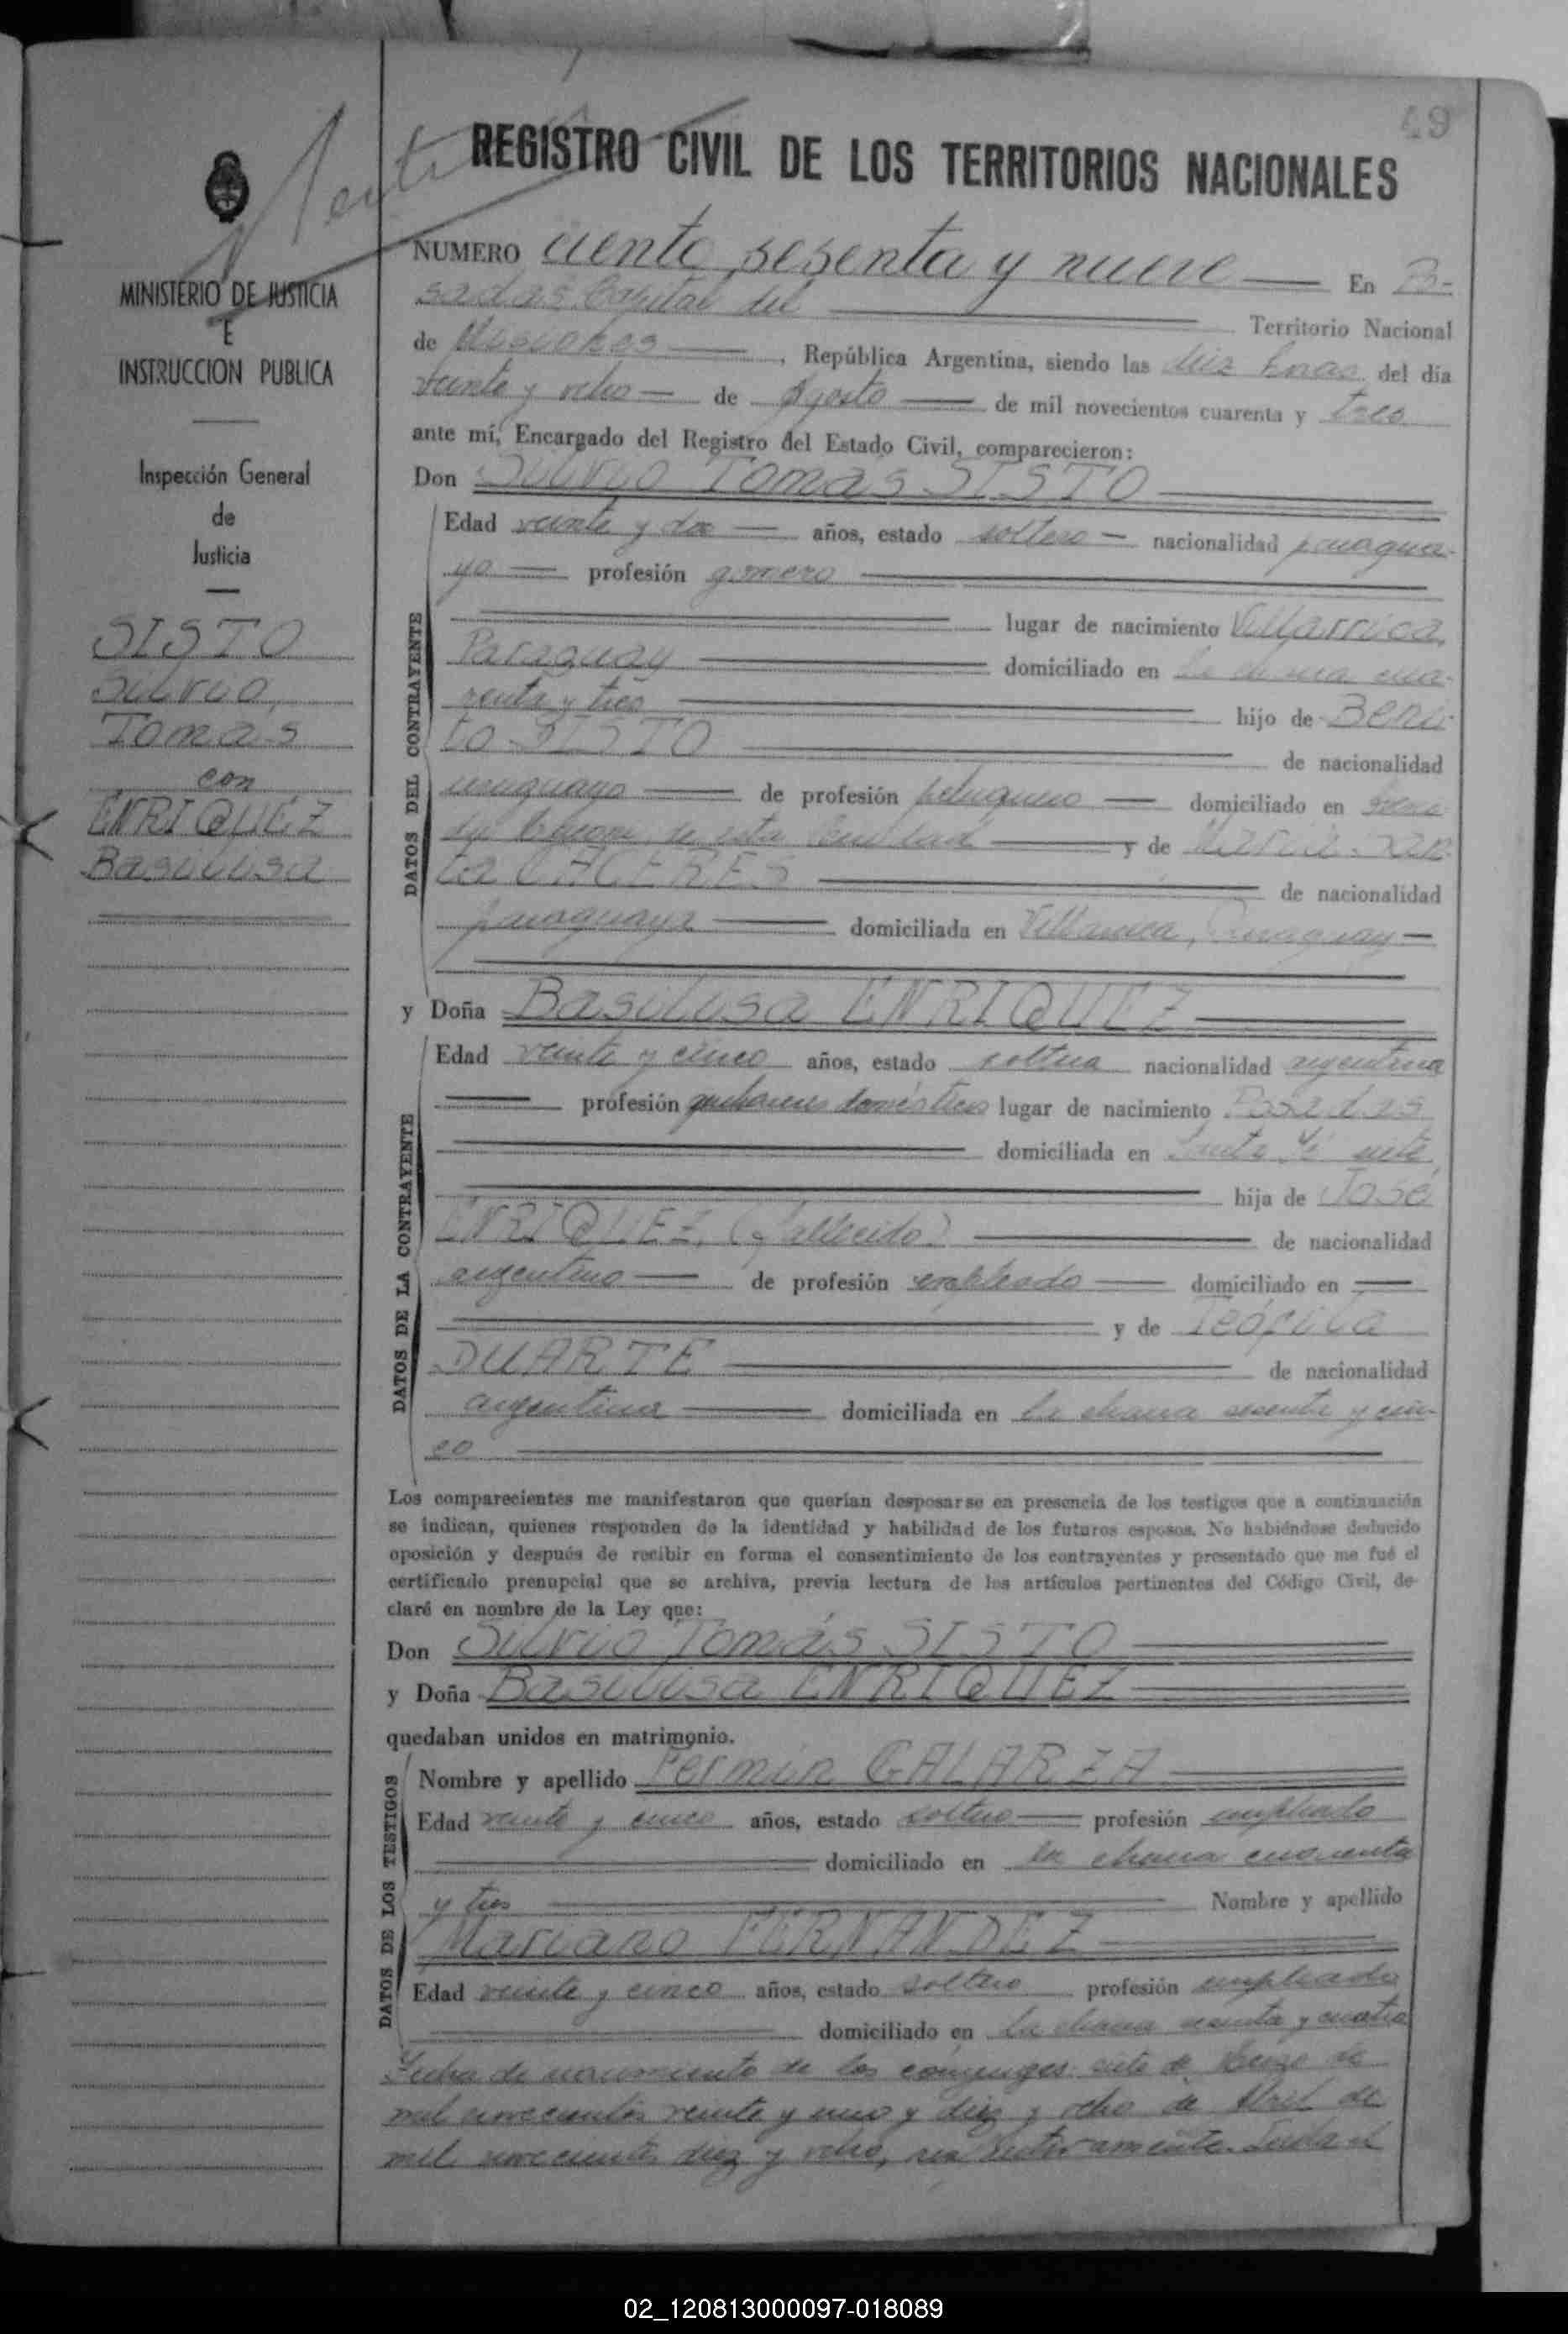 49
REGISTRO CIVIL DE LOS TERRITORIOS NACIONALES
MINISTERIO DE JUSTICIA
E
INSTRUCCION PUBLICA
Inspección General
de
Justicia
SISTO
Silvio,
Tomas
con
ENRIQUEZ
Basilisa
NUMERO ciento sesenta y nueve En Po-
sadas Capital del Territorio Nacional
de Misiones, República Argentina, siendo las diez horas del día
veinte y ocho de Agosto de mil novecientos cuarenta y tres
ante mí, Encargado del Registro del Estado Civil, comparecieron:
Don Silvio Tomás SISTO
DATOS DEL CONTRAYENTE
Edad veinte y dos años, estado soltero nacionalidad paragua-
yo profesión gomero
lugar de nacimiento Villarrica,
Paraguay domiciliado en la chacra cua-
renta y tres hijo de Beni-
to SISTO de nacionalidad
uruguayo de profesión peluquero domiciliado en
de esta Ciudad y de María San-
ta CACERES de nacionalidad
paraguaya domiciliada en Villarrica, Paraguay
y Doña Basilisa ENRIQUEZ
DATOS DE LA CONTRAYENTE
Edad veinte y cinco años, estado soltera nacionalidad argentina
profesión quehaceres domésticos lugar de nacimiento Posadas
domiciliada en Santa Fé siete,
hija de José
ENRIQUEZ, (fallecido) de nacionalidad
argentino de profesión empleado domiciliado en
y de Teófila
DUARTE de nacionalidad
argentina domiciliada en la chacra sesenta y cin-
co
Los comparecientes me manifestaron que querían desposarse en presencia de los testigos que a continuación
se indican, quienes responden de la identidad y habilidad de los futuros esposos. No habiéndose deducido
oposición y después de recibir en forma el consentimiento de los contrayentes y presentado que me fué el
certificado prenupcial que se archiva, previa lectura de los artículos pertinentes del Código Civil, de-
claré en nombre de la Ley que:
Don Silvio Tomás SISTO
y Doña Basilisa ENRIQUEZ
quedaban unidos en matrimonio.
DATOS DE LOS TESTIGOS
Nombre y apellido Fermín GALARZA
Edad veinte y cinco años, estado soltero profesión empleado
domiciliado en la chacra cuarenta
y tres Nombre y apellido
Mariano FERNANDEZ
Edad veinte y cinco años, estado soltero profesión empleado
domiciliado en la chacra sesenta y cuatro
Fecha de nacimiento de los cónyuges: siete de Marzo de
mil novecientos veinte y uno y diez y ocho de Abril de
mil novecientos diez y ocho, respectivamente. Leída el
02_120813000097-018089